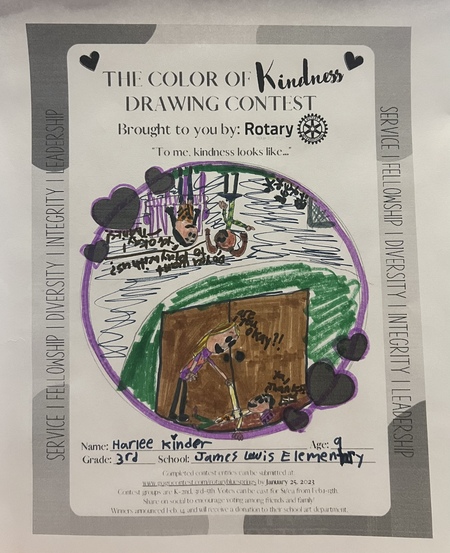 THE COLOR OF Kindness
DRAWING CONTEST
Brought to you by: Rotary
"To me, kindness looks like..."
SERVICE | FELLOWSHIP | DIVERSITY | INTEGRITY | LEADERSHIP
SERVICE | FELLOWSHIP | DIVERSITY | INTEGRITY | LEADERSHIP
Do you want
to play with us?
Name: Harlee Kinder Age: 9
Grade: 3rd School: James Lewis Elementry
Completed contest entries can be submitted at
by January 25, 2023
Contest groups are K-2nd, 3rd-5th. Votes can be cast for $1/ea from Feb 1-12th.
Share on social to encourage voting among friends and family!
Winners announced Feb 14, and will receive a donation to their school art department.